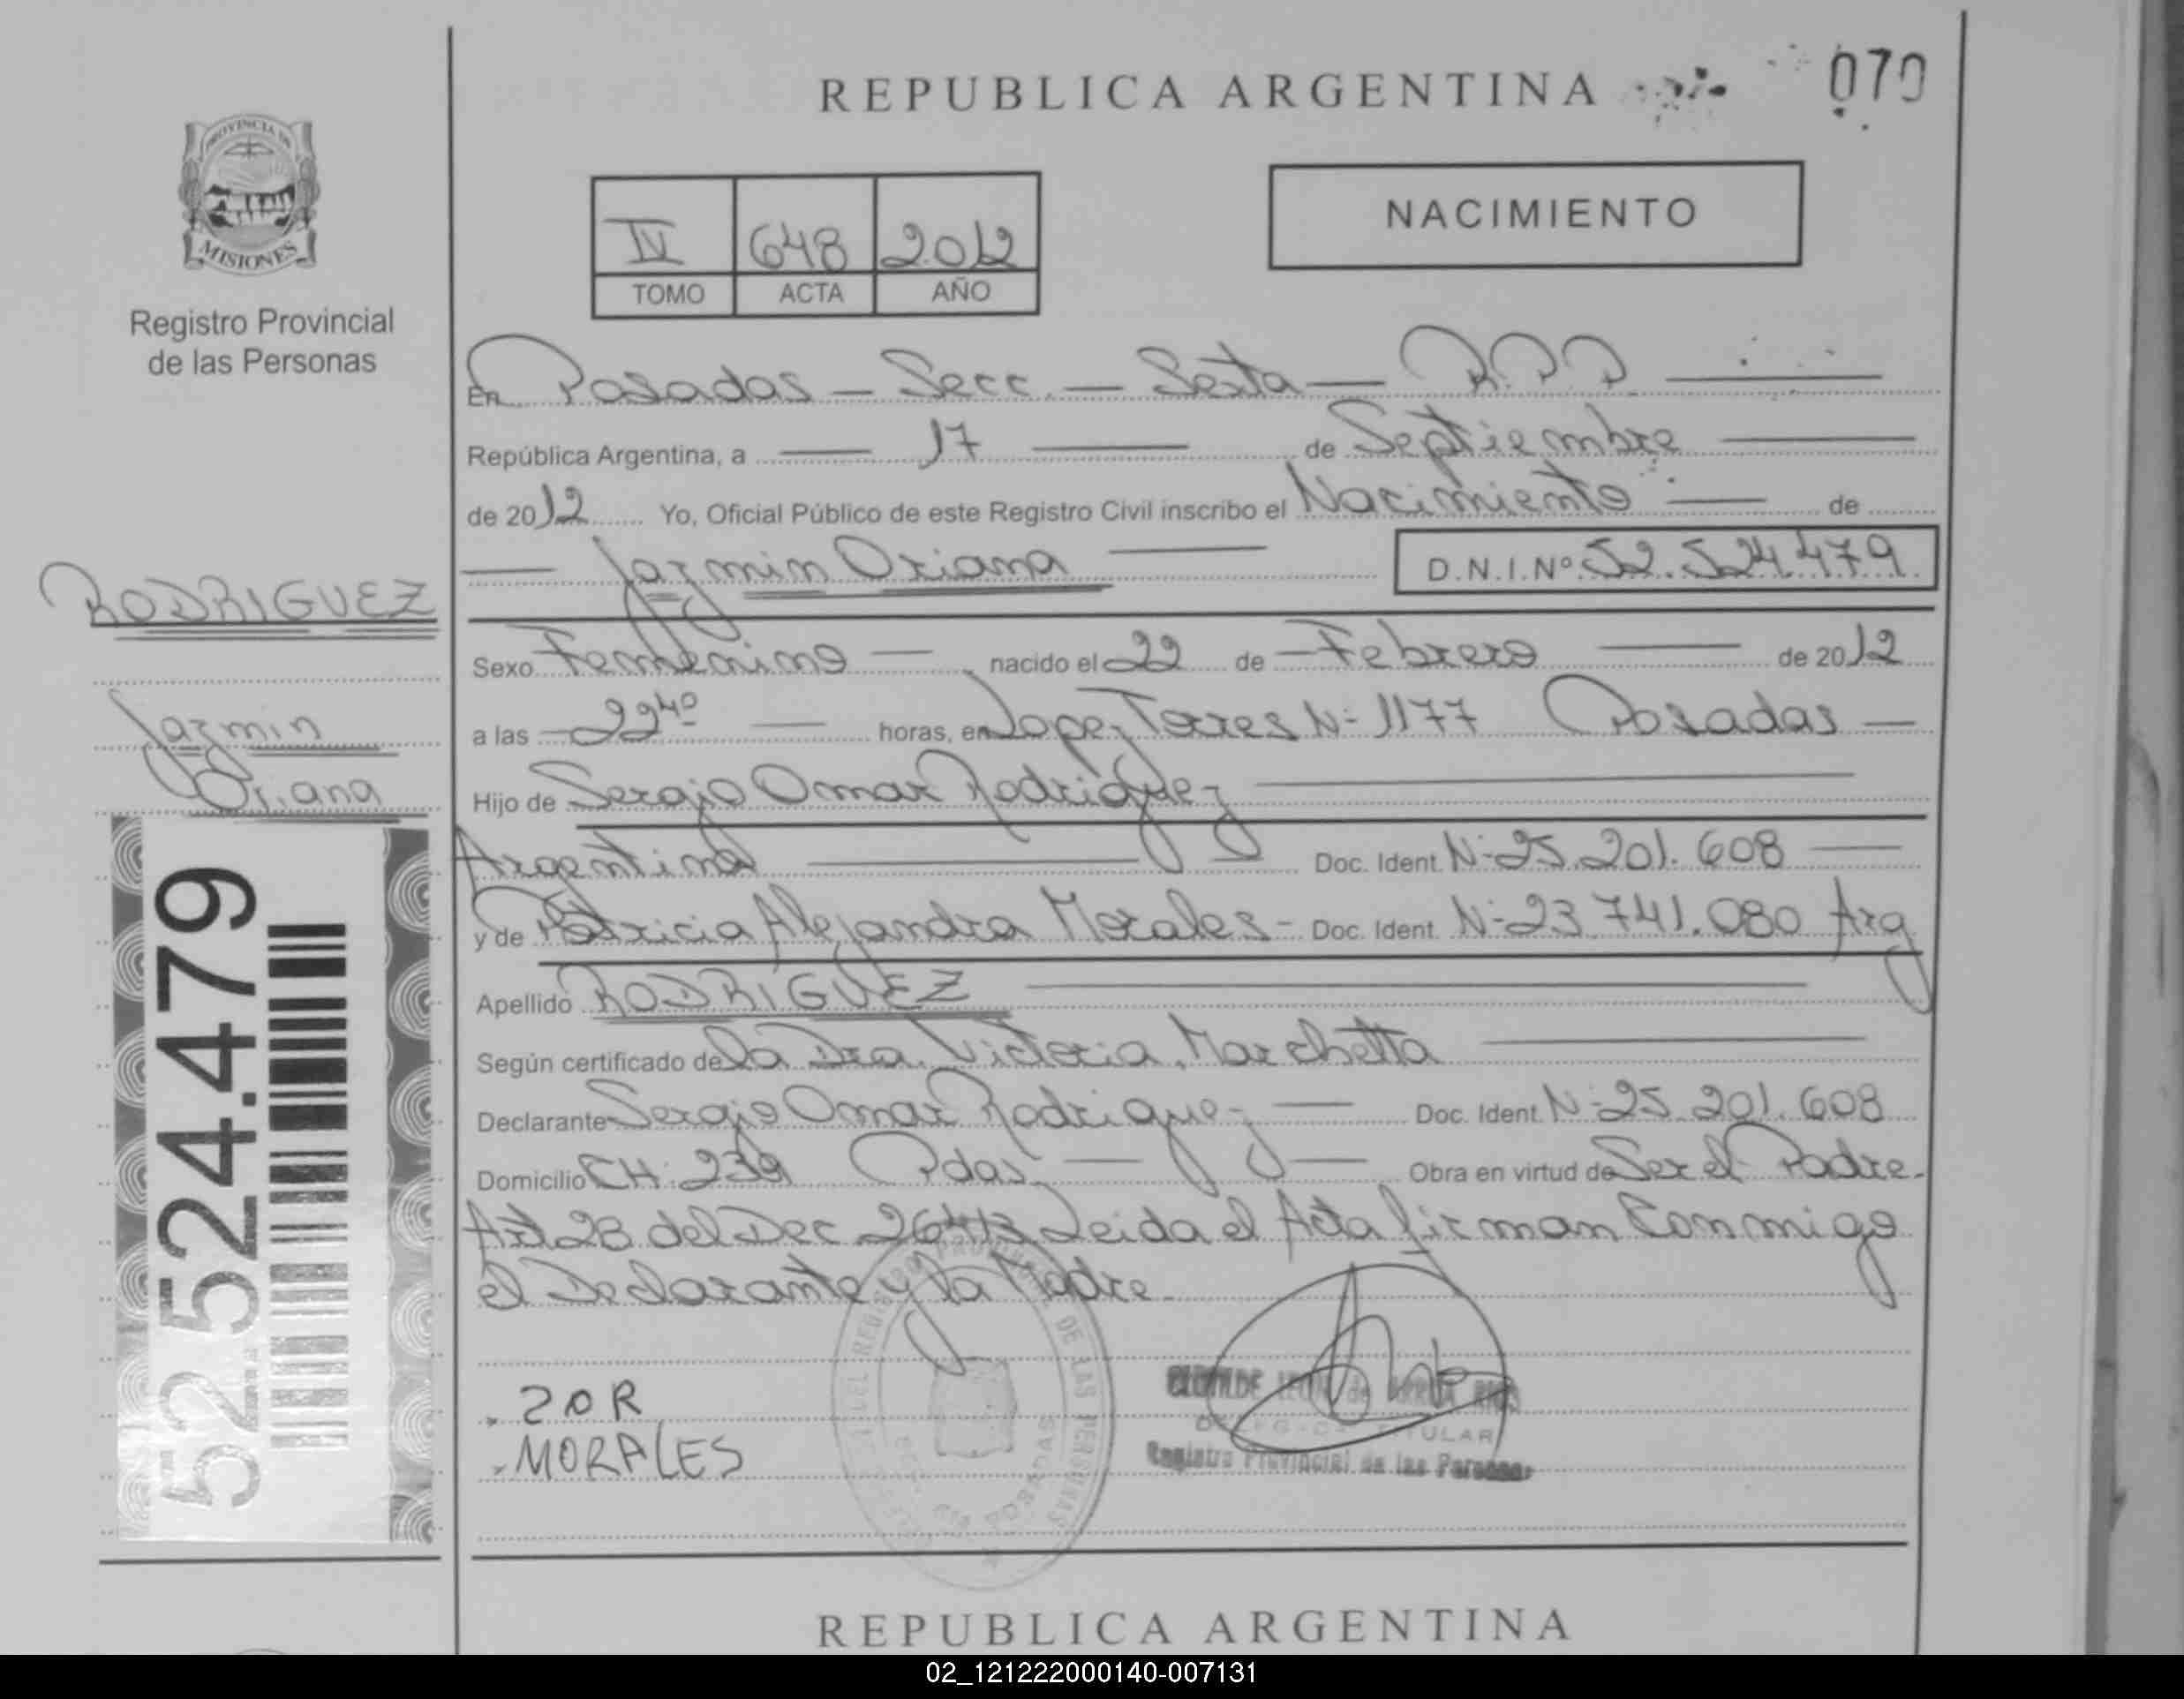 REPUBLICA ARGENTINA
070
PROVINCIA DE
MISIONES
Registro Provincial
de las Personas
IV 648 2012
TOMO ACTA AÑO
NACIMIENTO
En Posadas - Secc. - Sexta - R.P.P
República Argentina, a 17 de Septiembre
de 2012 Yo, Oficial Público de este Registro Civil inscribo el Nacimiento de
Jazmin Oriana D.N.I.Nº 52.524.479
RODRIGUEZ
Jazmin
Oriana
52.524.479
Sexo Femenino nacido el 22 de Febrero de 2012
a las 22 40 horas, en Lopez Torres N- 1177 Posadas
Hijo de Sergio Omar Rodriguez
Argentina Doc. Ident. N- 25.201.608
y de Patricia Alejandra Morales - Doc. Ident. N- 23.741.080 Arg
Apellido RODRIGUEZ
Según certificado de la Dra. Victoria, Marchetta
Declarante Sergio Omar Rodriguez Doc. Ident. N- 25.201.608
Domicilio CH. 239 Pdas. Obra en virtud de Ser el Padre.
Art 28 del Dec 2647/3 Leida el Acta firman Conmigo
el Declarante y la Madre.
MORALES
DE LAS PERSONAS
POSADAS
TITULAR
Registro Provincial de las Personas
REPUBLICA ARGENTINA
02_121222000140-007131